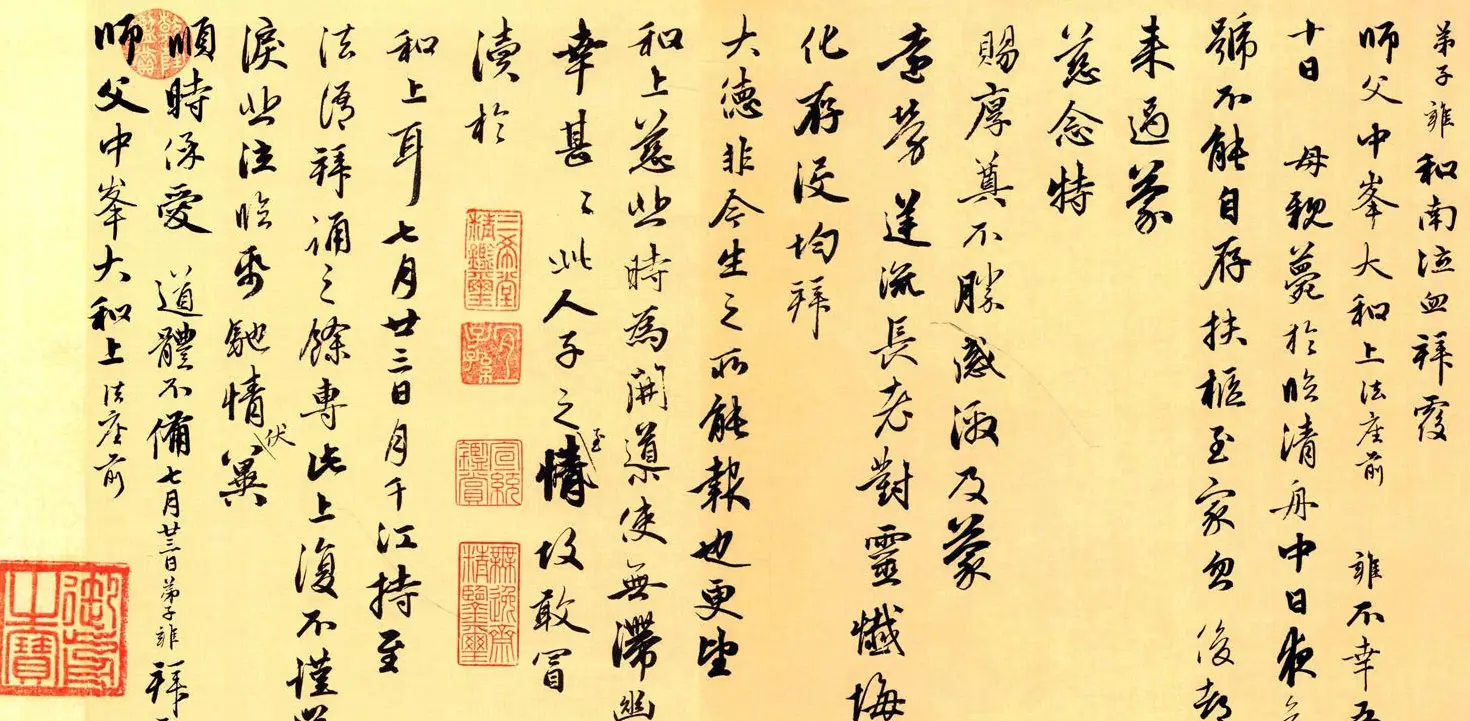 弟子雍和南泣血拜覆
師父中峯大和上法座前 雍不幸五
十日 母親薨於臨清舟中日夜
號不能自存扶柩至家忽後都
来過蒙
慈念特
賜厚奠不勝感激及蒙
遠勞流長老對靈懺悔
化存沒均拜
大德非今生之所能報也更望
和上慈悲時為開導使無滯幽
幸甚〻此人子之至情故敢冒
瀆於
和上耳七月廿三日月千江持至
法語拜誦之餘專此上復不謹
淚悲泣臨帋馳情伏冀
順時保愛 道體不備七月廿三日弟子雍拜
師父中峯大和上法座前
三希堂精鑑璽
宜子孫
宣統鑑賞
無逸齋精鑒璽
乾隆鑑賞
御書之寶